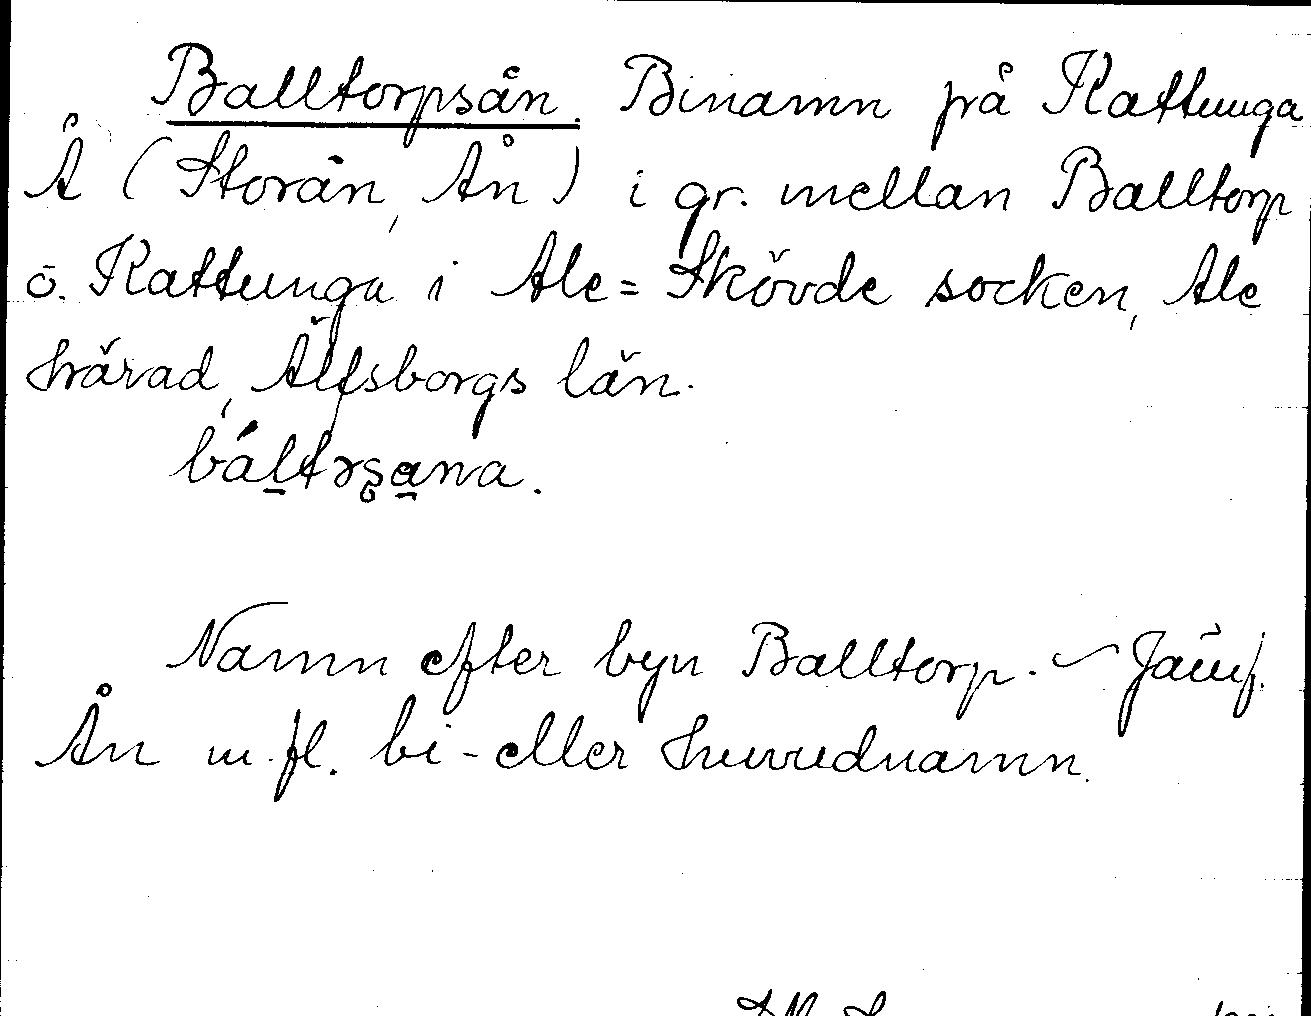 Balltorpsån. Binamn på Kattunga
Å (Storån, Ån) i gr. mellan Balltorp
o. Kattunga i Ale=Skövde socken, Ale
härad, Älfsborgs län.
báltərsana.
Namn efter byn Balltorp. ~ Jämf.
Ån m. fl. bi-eller huvudnamn.